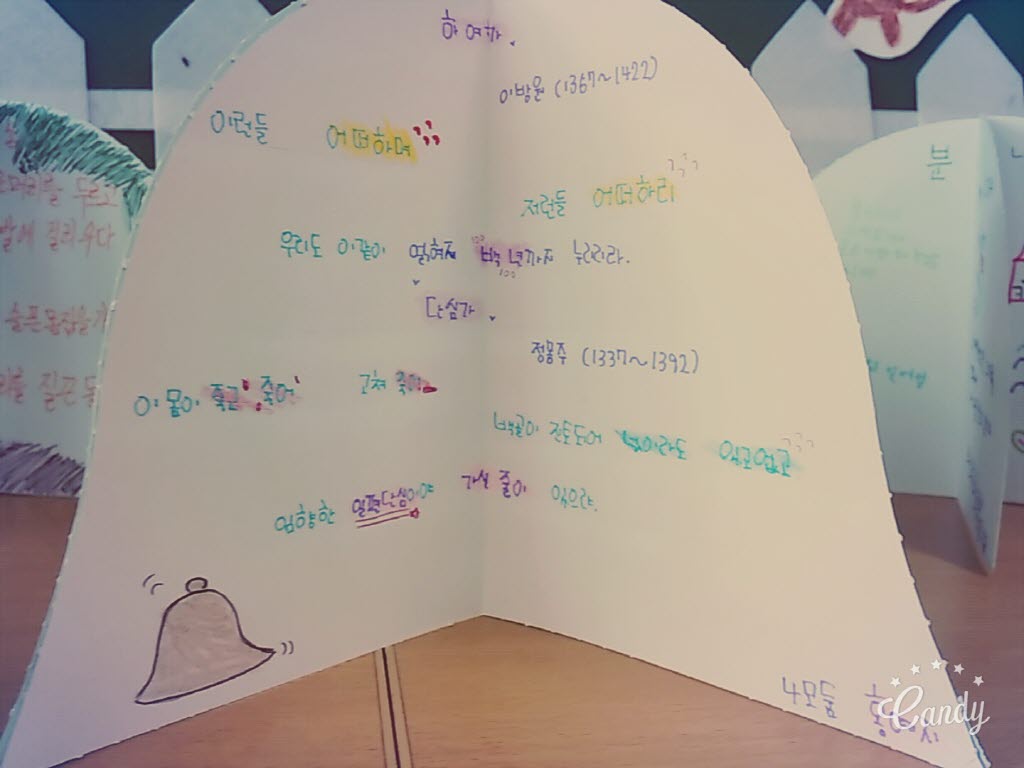 하여가
이방원 (1367~1422)
이런들 어떠하며
저런들 어떠하리
우리도 이같이 얽혀져 백년까지 누리리라.
100
100
단심가
정몽주 (1337~1392)
이 몸이 죽고 죽어 고쳐 죽어
백골이 진토되어 넋이라도 있고없고
임향한 일편단심이야 가실 줄이 있으랴.
4모둠
Candy
분
슬픈